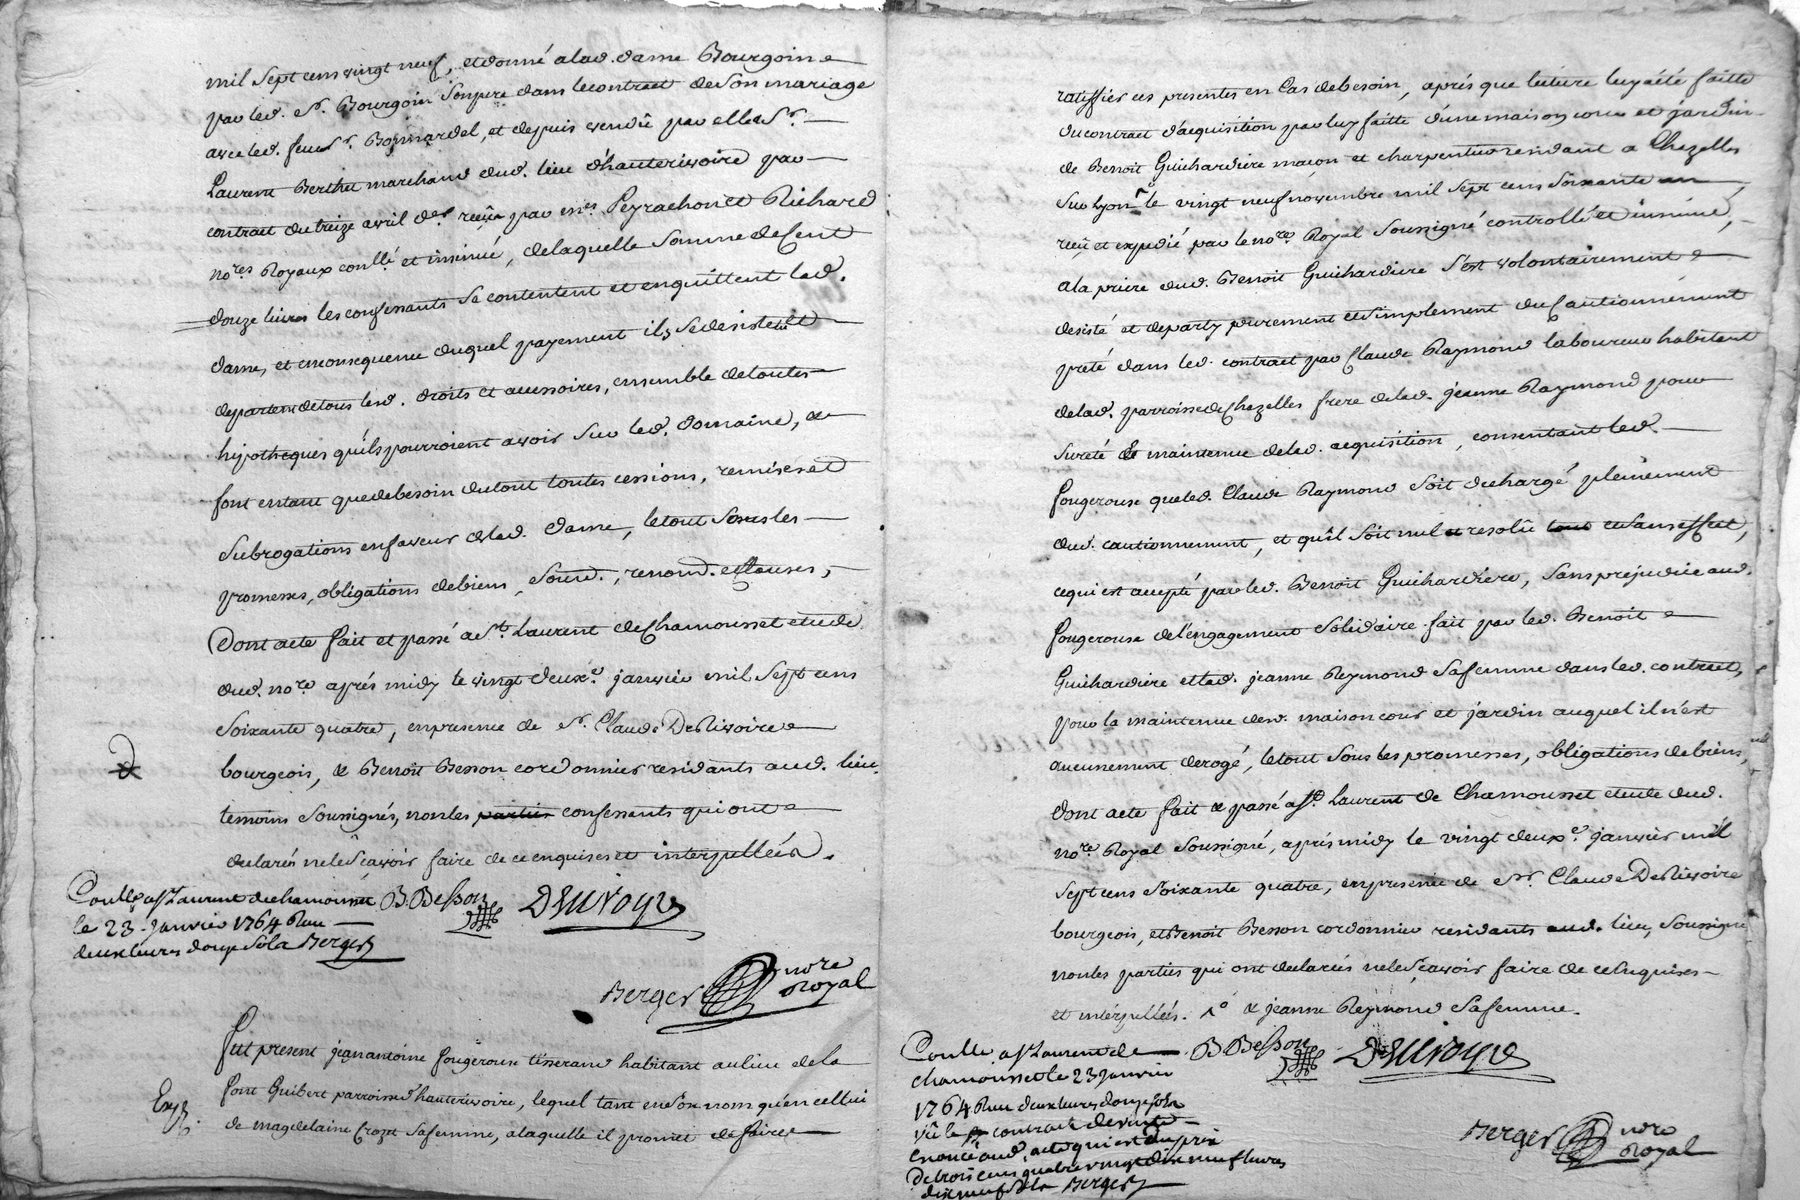 mil sept cens vingt neuf, et donné a lad. dame Bourgoin
par led. Sr. Bourgoin son pere dans le contract de son mariage
avec led. feu Sr. Bonnardel, et depuis vendu par elle a Sr.
Laurent Berthet marchand dud. lieu d'hauterivoire par
contract du treize avril dr. reçû par mes. Peyrachon et Richard
nores Royaux conllé et insinué, de laquelle somme de Cent
douze livres les confessants se contentent et en quittent lad.
dame, et en consequence duquel payement ils se desistent et
departent de tous lesd. droits et accessoires, ensemble de toutes
hypotheques qu'ils pourroient avoir sur led. domaine, &
font en tant que de besoin du tout toutes cessions, remises et
subrogations en faveur de lad. dame, le tout sous les
promesses, obligations de biens, soumd., renond. et Clauses,
Dont acte fait et passé a St. Laurent de Chamousset etude
dud. nore après midy le vingt deuxe. janvier mil sept cens
soixante quatre, en presence de Sr. Claude DeRivoire
bourgeois, & Benoit Besson cordonnier residants aud. lieu,
temoins soussignés, non les parties confessants qui ont
declarés ne le sçavoir faire de ce enquises et interpellées.
Conllé a St Laurent de chamousset
le 23. janvier 1764 Reçu
deux livres douze sols Berger
B. Besson
DeRivoyre
Berger nore Royal
Fut present jean antoine fougerouse tisserand habitant au lieu de la
font Guibert parroisse d'hauterivoire, lequel tant en son nom qu'en celluy
Exp.
de magdelaine Crozet sa femme, a laquelle il promet de faire
ratiffier ces presentes en Cas de besoin, après que lecture luy a été faitte
du contract d'acquisition par luy faitte d'une maison cour et jardin
de Benoit Guichardiere maçon et charpentier residant a Chazelles
sur Lyon 1° le vingt neuf novembre mil sept cens soixante un
reçû et expedié par le nore. Royal soussigné controllé et insinué,
a la priere dud. Benoit Guichardiere s'est volontairement
desisté et departy purement et simplement du Cautionnement
preté dans led. contract par Claude Raymond laboureur habitant
de lad. parroisse de Chazelles frere de lad. jeanne Raymond pour
sureté & maintenue de lad. acquisition, consentant led.
fougerouse que led. Claude Raymond soit dechargé pleinement
dud. cautionnement, et qu'il soit nul et resolû tout et sans effect,
ce qui est accepté par led. Benoit Guichardiere, sans prejudice aud.
fougerouse de l'engagement solidaire fait par led. Benoit
Guichardiere et lad. jeanne Reymond sa femme dans led. contract,
pour la maintenue desd. maison cour et jardin auquel il n'est
aucunement derogé, le tout sous les promesses, obligations de biens,
dont acte fait & passé a St. Laurent de Chamousset etude dud.
nore Royal soussigné, après midy le vingt deuxe. janvier mil
sept cens soixante quatre, en presence de Sr. Claude DeRivoire
bourgeois, et Benoit Besson cordonnier residants aud. lieu, soussignés
non les parties qui ont declarés ne le sçavoir faire de ce enquises
et interpellés. 1° & jeanne Reymond sa femme.
Conllé a St Laurent de
chamousset le 23 janvier
1764 Reçu deux livres douze sols
vû le contract de vente
enoncé aud. acte qui est du prix
de trois cens quatre vingt dix neuf livres
dix neuf sols Berger
B. Besson
DeRivoyre
Berger nore Royal